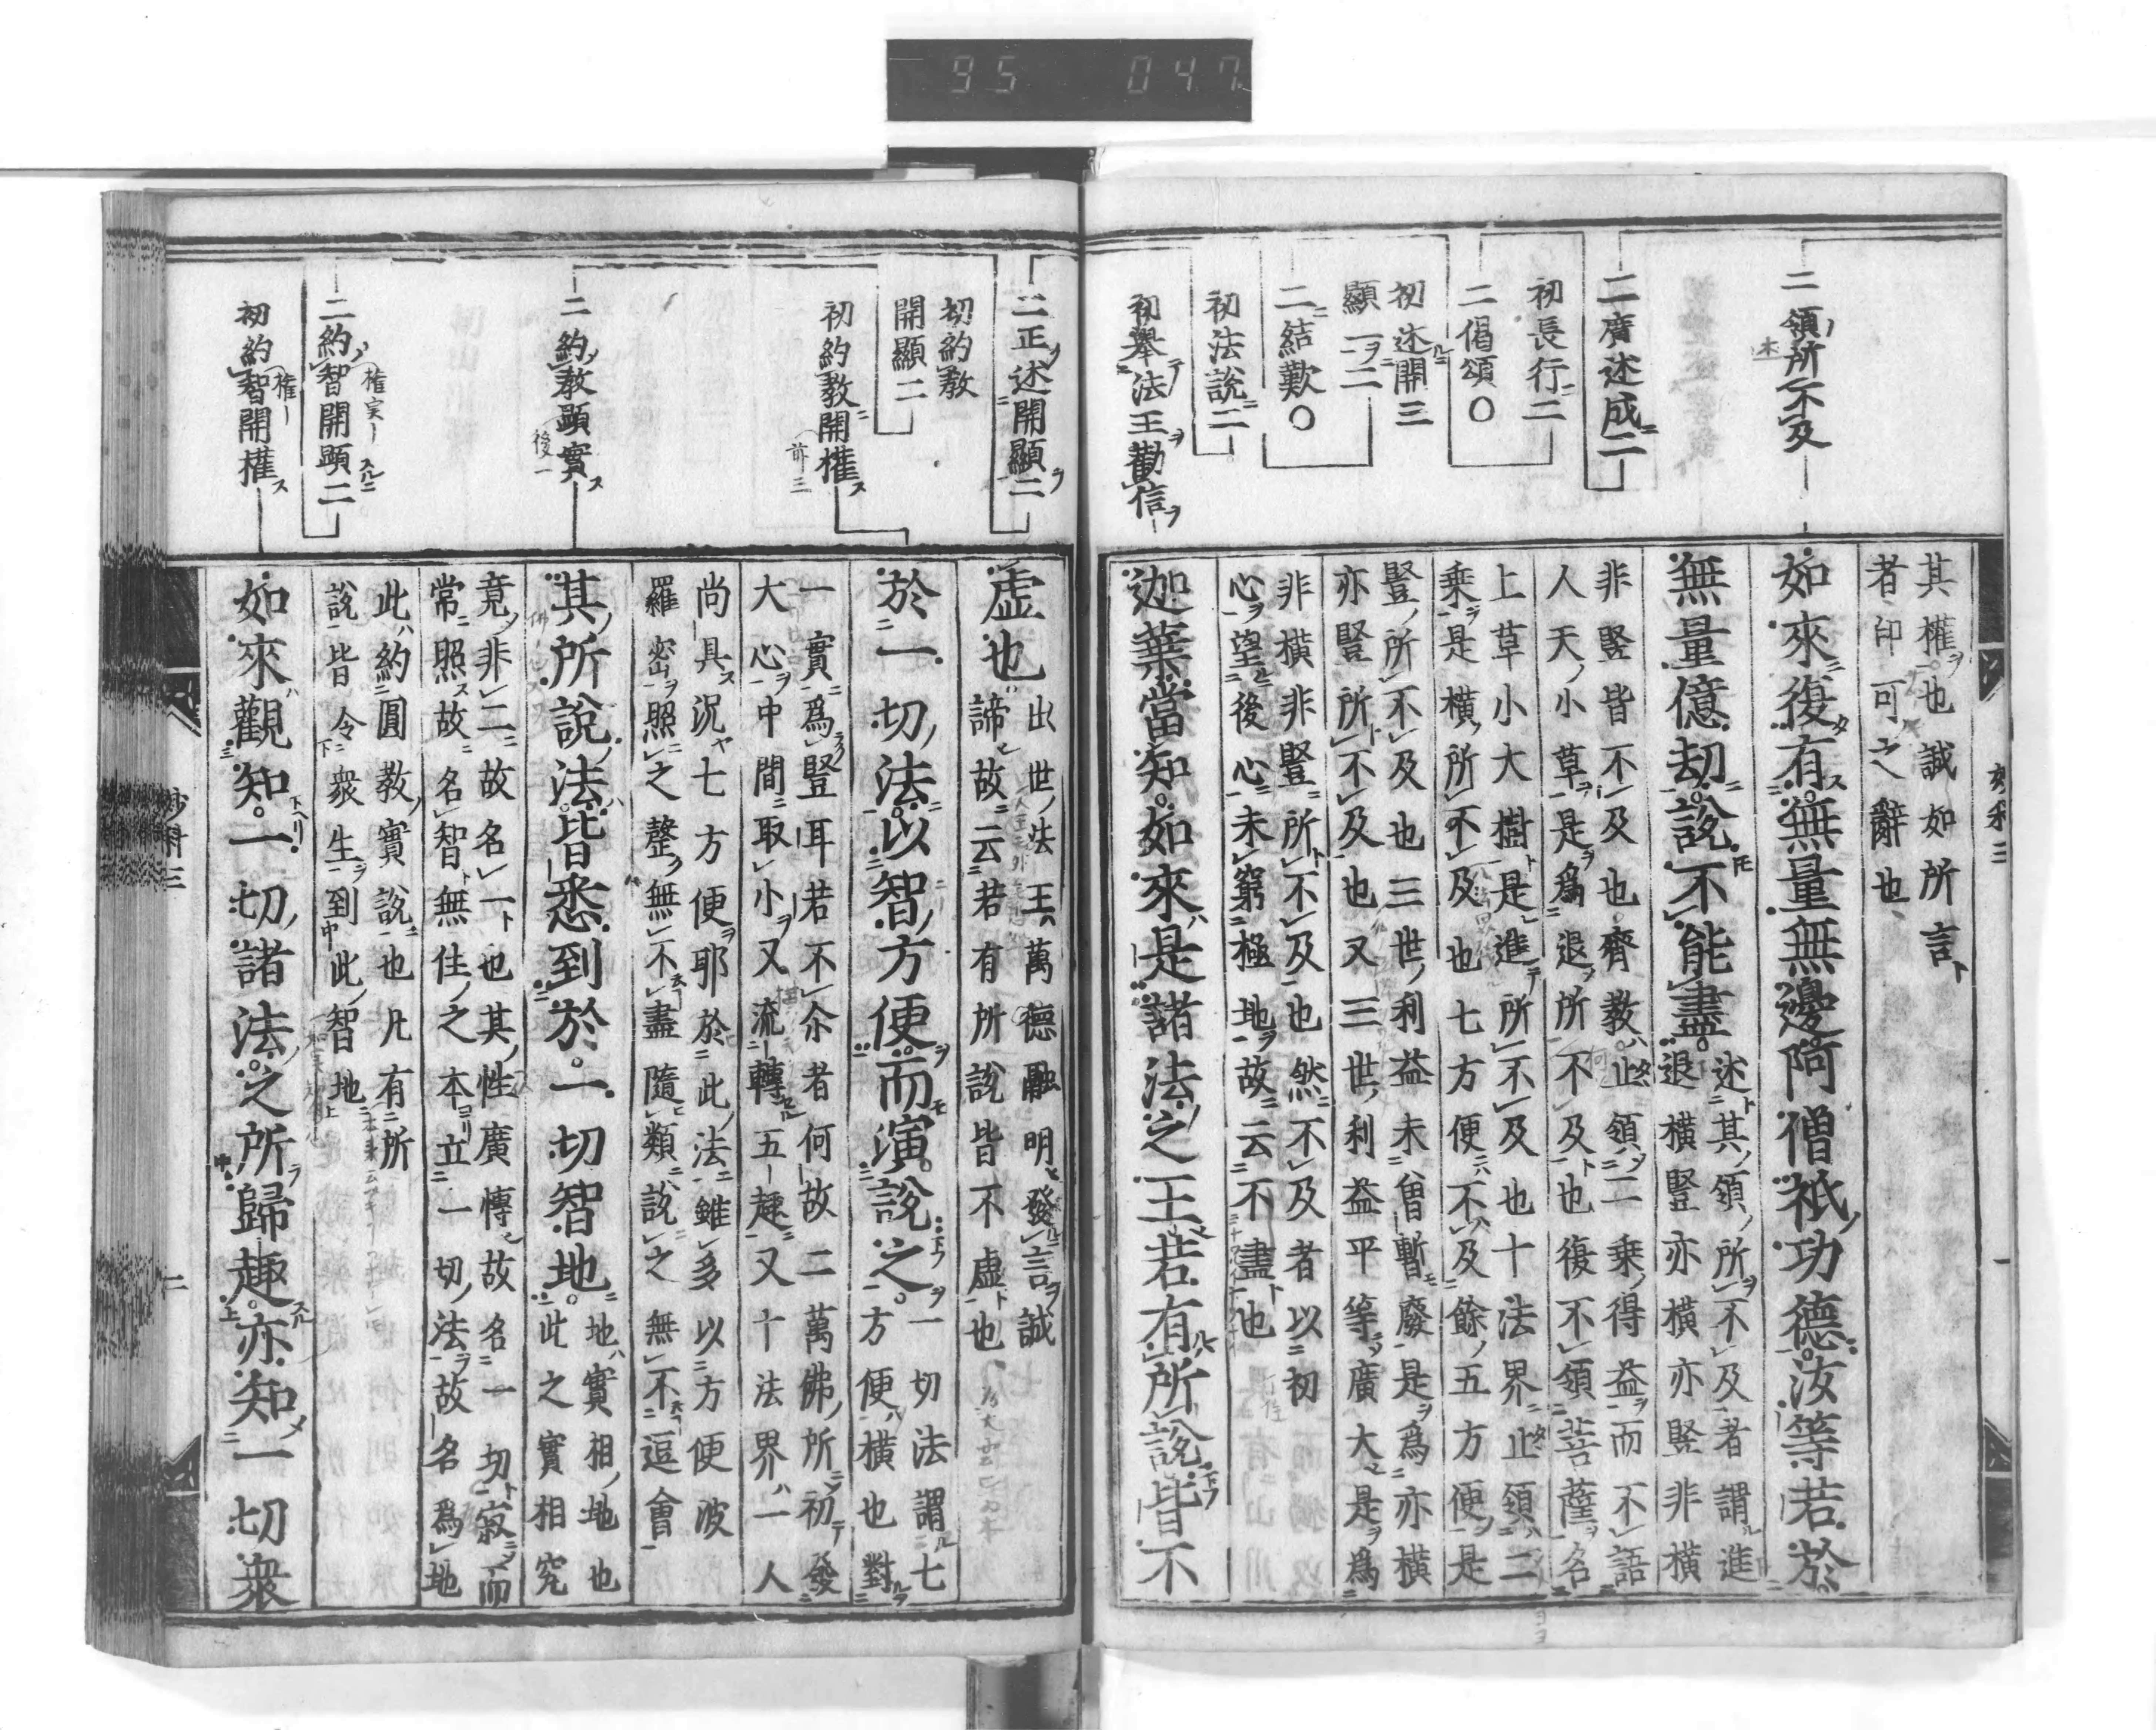 95 047
二領所不及
二廣述成二
初長行二
二偈頌〇
初述開三
顯一二
二結歎〇
初法說二
初舉法王勸信
其權也誠如所言
者印可之辭也
如來復有無量無邊阿僧祇功德汝等若於
無量億劫說不能盡
述其領所不及者謂進
退橫豎亦橫亦豎非橫
非豎皆不及也齊教止領二乘得益而不語
人天小草是爲退所不及也復不領菩薩名
上草小大樹是進所不及也十法界止領二
乘是橫所不及也七方便不及餘五方便是
豎所不及也三世利益未曾暫廢是爲亦橫
亦豎所不及也又三世利益平等廣大是爲
非橫非豎所不及也然不及者以初
心望後心未窮極地故云不盡也
迦葉當知如來是諸法之王若有所說皆不
二正述開顯二
初約教
開顯二
初約教開權
前三
二約教顯實
後一
二約智開顯二
初約智開權
虛也
出世法王萬德融明發言誠
諦故云若有所說皆不虛也
於一切法以智方便而演說之
一切法謂七
方便橫也對
一實爲豎耳若不尒者何故二萬佛所初發
大心中間取小又流轉五趣又十法界一人
尚具況七方便耶於此法雖多以方便波
羅密照之罄無不盡隨類說之無不逗會
其所說法皆悉到於一切智地
地實相地也
此之實相究
竟非二故名一也其性廣博故名一切寂而
常照故名智無住之本立一切法故名爲地
此約圓教實說也凡有所
說皆令衆生到此智地
如來觀知一切諸法之所歸趣亦知一切衆
妙科三
二